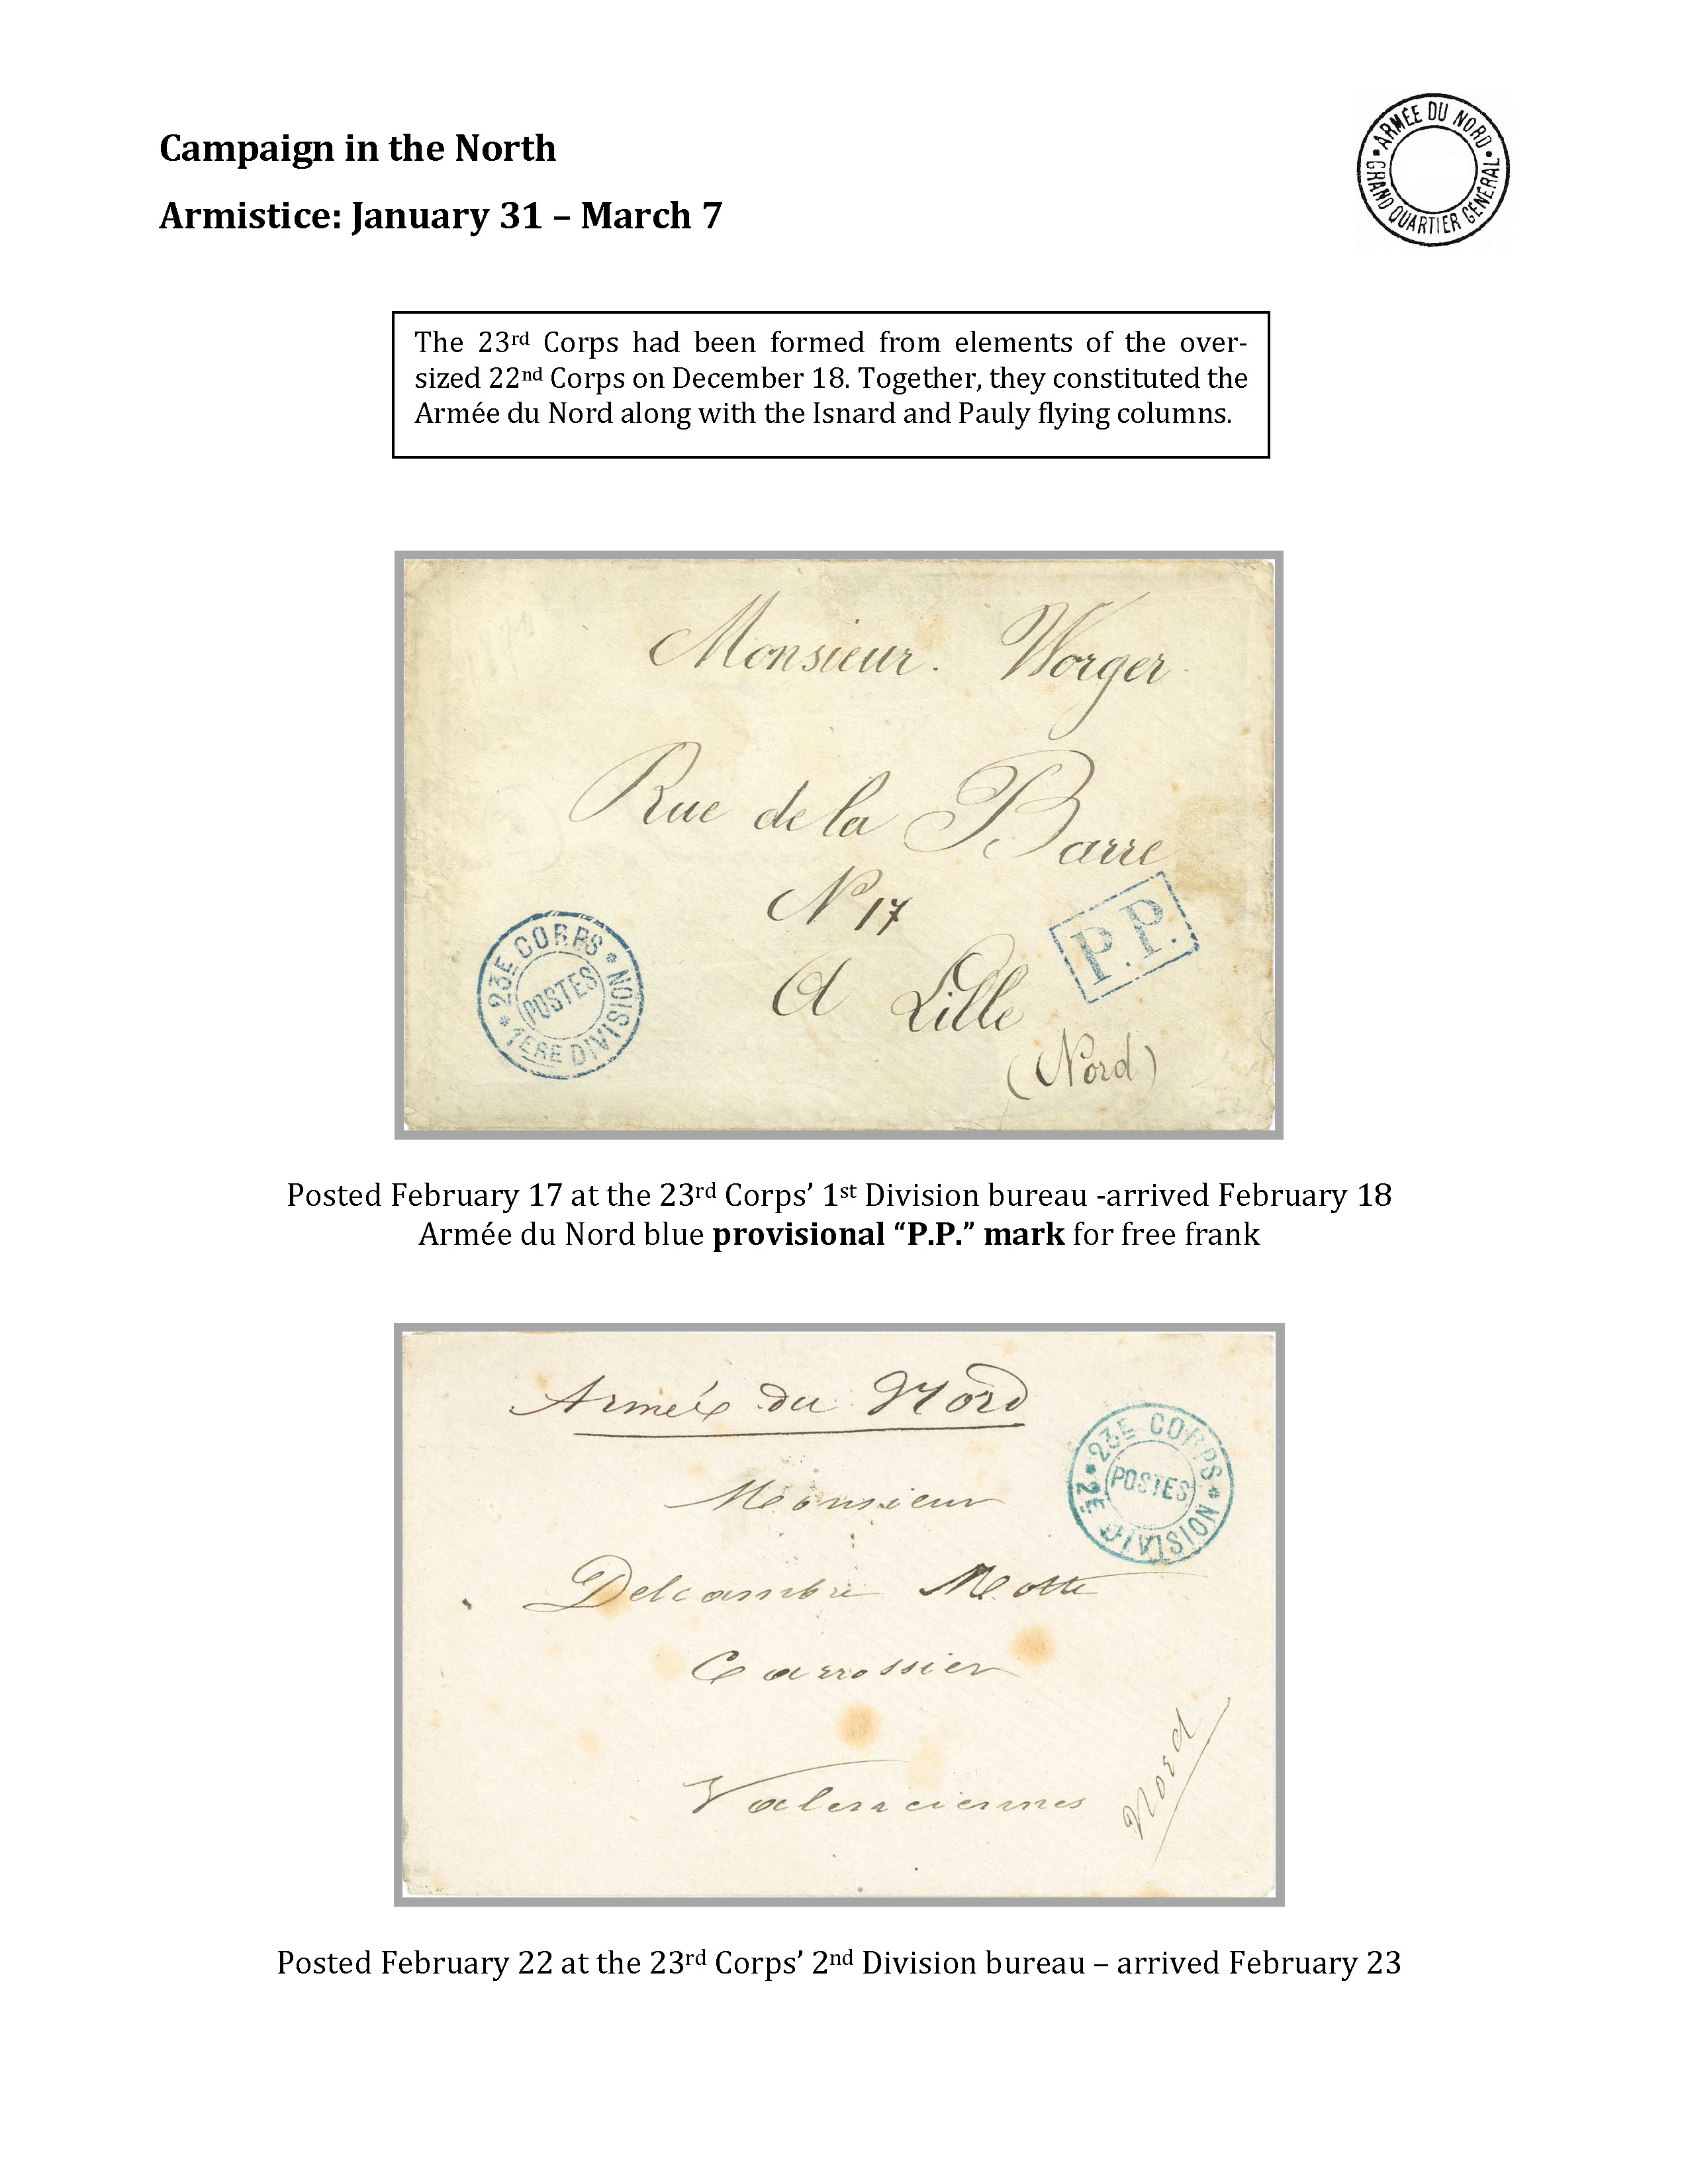 Campaign in the North
Armistice: January 31 – March 7
• ARMÉE DU NORD •
GRAND QUARTIER GÉNÉRAL
The 23rd Corps had been formed from elements of the over-
sized 22nd Corps on December 18. Together, they constituted the
Armée du Nord along with the Isnard and Pauly flying columns.
Monsieur. Worger
Rue de la Barre
No 17
A Lille
(Nord)
P.P.
* 23E CORPS *
POSTES
1ERE DIVISION
Posted February 17 at the 23rd Corps’ 1st Division bureau -arrived February 18
Armée du Nord blue provisional “P.P.” mark for free frank
Armée du Nord
* 23E CORPS *
POSTES
2E DIVISION
Monsieur
Delcambre Motte
Carrossier
Valenciennes
Nord
Posted February 22 at the 23rd Corps’ 2nd Division bureau – arrived February 23